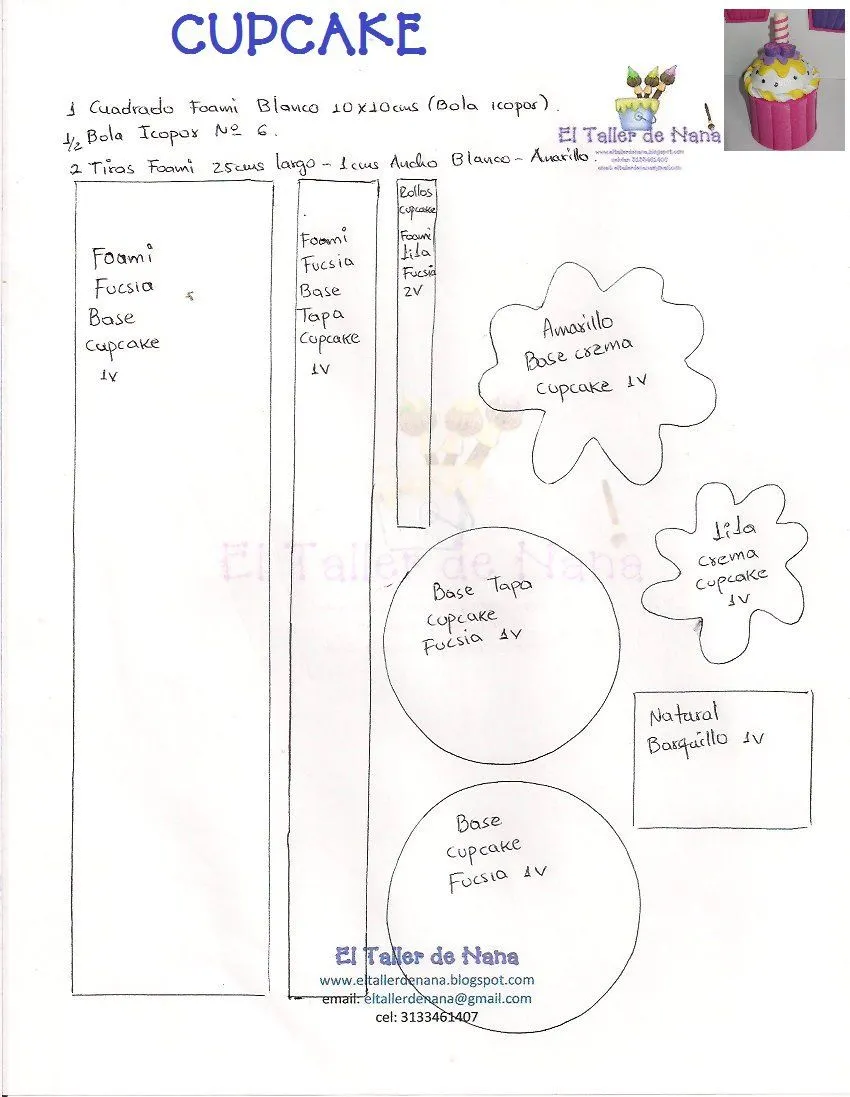 CUPCAKE
1 Cuadrado Foami Blanco 10x10cms (Bola icopor).
1/2 Bola Icopor Nº 6.
2 Tiras Foami 25cms largo - 1cms Ancho Blanco - Amarillo.
El Taller de Nana
www.eltallerdenana.blogspot.com
celular 3133461407
email: eltallerdenana@gmail.com
Foami
Fucsia
Base
Cupcake
1V
Foami
Fucsia
Base
Tapa
Cupcake
1V
Rollos
Cupcake
Foami
Lila
Fucsia
2V
Amarillo
Base crema
Cupcake 1V
Lila
crema
cupcake
1V
El Taller de Nana
Base Tapa
Cupcake
Fucsia 1V
Natural
Barquillo 1V
Base
Cupcake
Fucsia 1V
El Taller de Nana
www.eltallerdenana.blogspot.com
email: eltallerdenana@gmail.com
cel: 3133461407